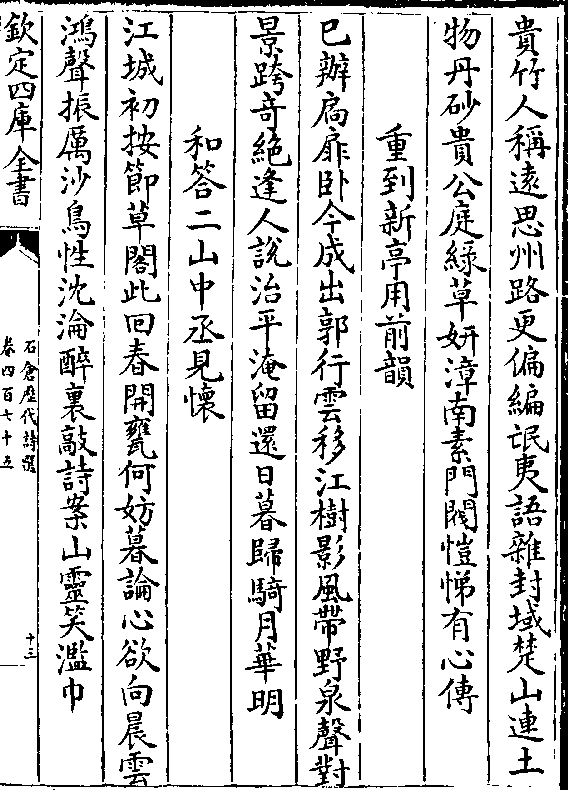 貴竹人稱逺思州路更偏編氓夷語雜封域楚山連土
物丹砂貴公庭緑草妍漳南素門閥愷悌有心傳
重到新亭用前韻
已辦扄扉卧今成出郭行雲移江樹影風帶野泉聲對
景跨竒絶逢人說治平淹留還日暮歸騎月華明
和答二山中丞見懷
江城初按節草閣此回春開甕何妨暮論心欲向晨雲
鴻聲振厲沙鳥性沈淪醉裏敲詩案山靈笑濫巾
欽定四庫全書
石倉歴代詩選
卷四百七十五
十三